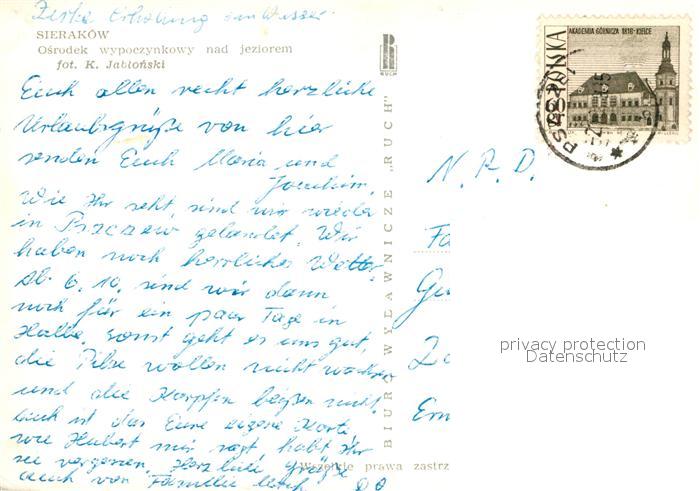 Erholung am Wasser
SIERAKÓW
Ośrodek wypoczynkowy nad jeziorem
fot. K. Jabłoński
RUCH
Euch allen recht herzliche
Urlaubsgrüße von hier
senden Euch Maria und
Joachim.
Wie Ihr seht, sind wir wieder
in Pszczew gelandet. Wir
haben noch herrliches Wetter,
Ab 6.10. sind wir dann
noch für ein paar Tage in
Halle, sonst geht es uns gut,
die Pilze wollen nicht wachsen
und die Karpfen beißen nicht.
ist das Eure eigene Karte
wie Hubert mir sagt habt Ihr
sie vergessen. Herzliche Grüße
auch von Familie
BIURO WYDAWNICZE „RUCH"
Wszelkie prawa zastrz
AKADEMIA GÓRNICZA 1816-KIELCE
POLSKA
N.R.D.
Fa
Gu
Er
privacy protection
Datenschutz